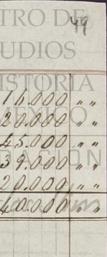 TRO DE
49
UDIOS
ISTORIA
16.000 " "
20.000 " "
45.000 " "
39.000 " "
20.000 " "
40.000 " "